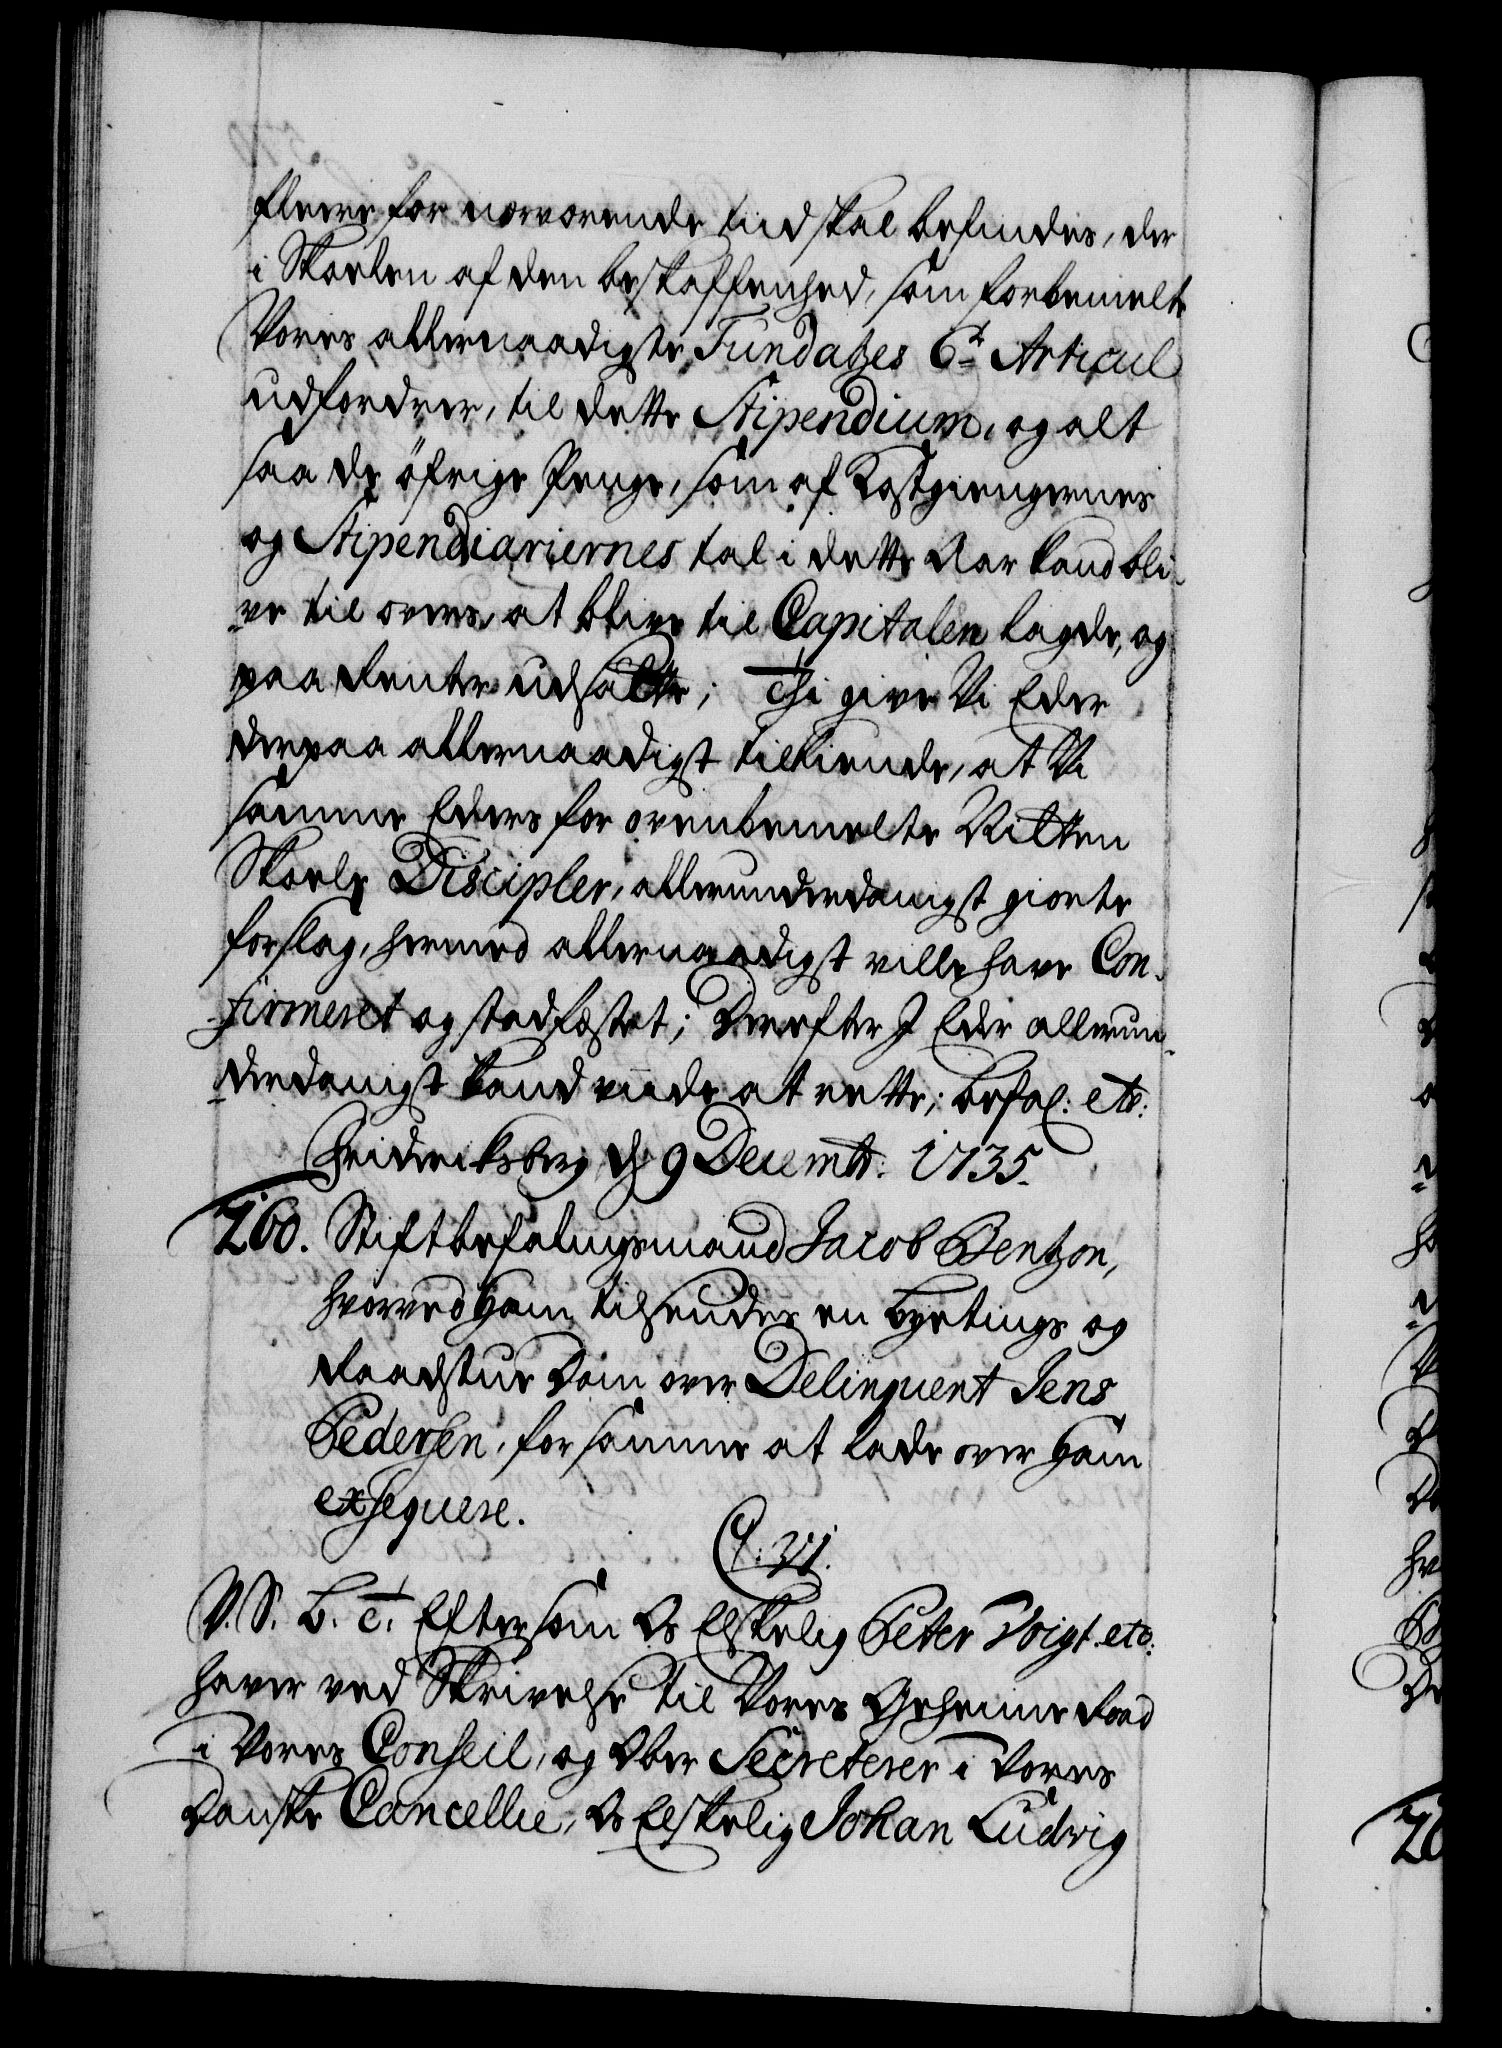 fleere for nærværende tiid skal befindes, der
i Skoelen af den beskaffenhed, som forbemelte
Vores allernaadigste Fundatzes 6te Articul
udfordrer, til dette Stipendium, og alt
saa de öfrige Penge, som af Kostgiengernes
og Stipendiariernes tal i dette Aar kand bli-
ve til overs, at blive til Capitalen lagde, og
paa Rente udsatte; Thi give Vi Eder
derpaa allernaadigst tilkiende, at Vi
samme Eders for ovenbemelte Latinske
Skoele Discipler, allerunderdanigst giorte
forslag, hermed allernaadigst ville have Con-
firmeret og stadfæstet; Derefter I Eder allerun-
derdanigst kand viide at rette; Befal: etc:
Friderichsberg d: 9 Decembr: 1735.
260. Stiftbefalingsmand Jacob Bentzon,
hvorved ham tilsendes en Byetings og
Raadstue Dom over Delinqvent Jens
Pedersen, for samme at lade over ham
exseqvere.
C: VI.
V. S. G. T. Eftersom Os Elskelig Peter Voigt etc:
haver ved Skrivelse til Vores Geheime Raad
i Vores Conseil, og Ober Secreterer i Vores
Danske Cancellie, Os Elskelig Johan Ludvig